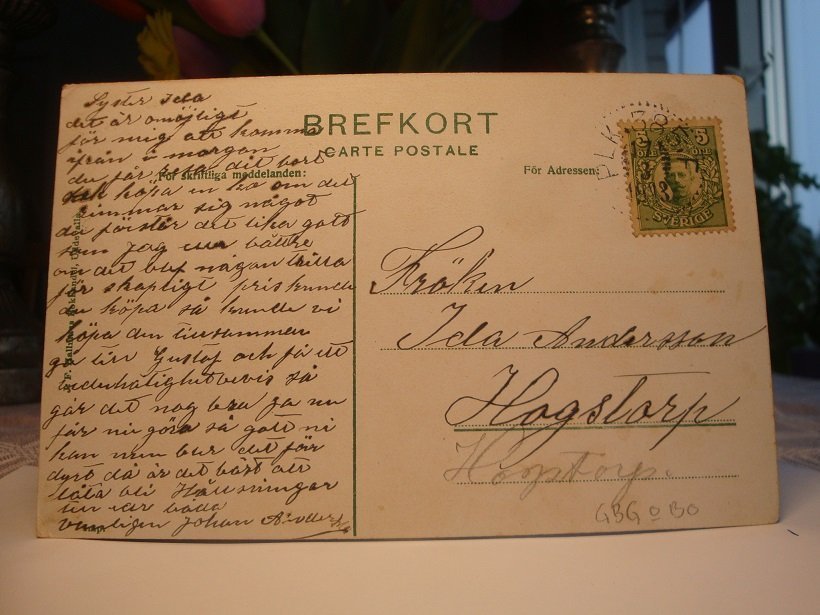 Syster Ida
det är omöjligt
för mig att komma
ifrån i morgon
du får resa dit bort
och köpa en ko om det
lämnar sig något
du förstår det lika gott
som jag bättre
om det blef någon trilla
för skapligt pris kunde
du köpa så kunde vi
köpa den tillsammen
gå till Gustaf och få ett
så
går det nog bra ja nu
får ni göra så gott ni
kan men bur det för
dyrt då är det bäst att
låta bli Hälsningar
till er båda
vänligen Johan
BREFKORT
CARTE POSTALE
För skriftliga meddelanden:
För Adressen:
5 5
SVERIGE
Fröken
Ida Andersson
Hogstorp
Hogstorp.
GBG o BO